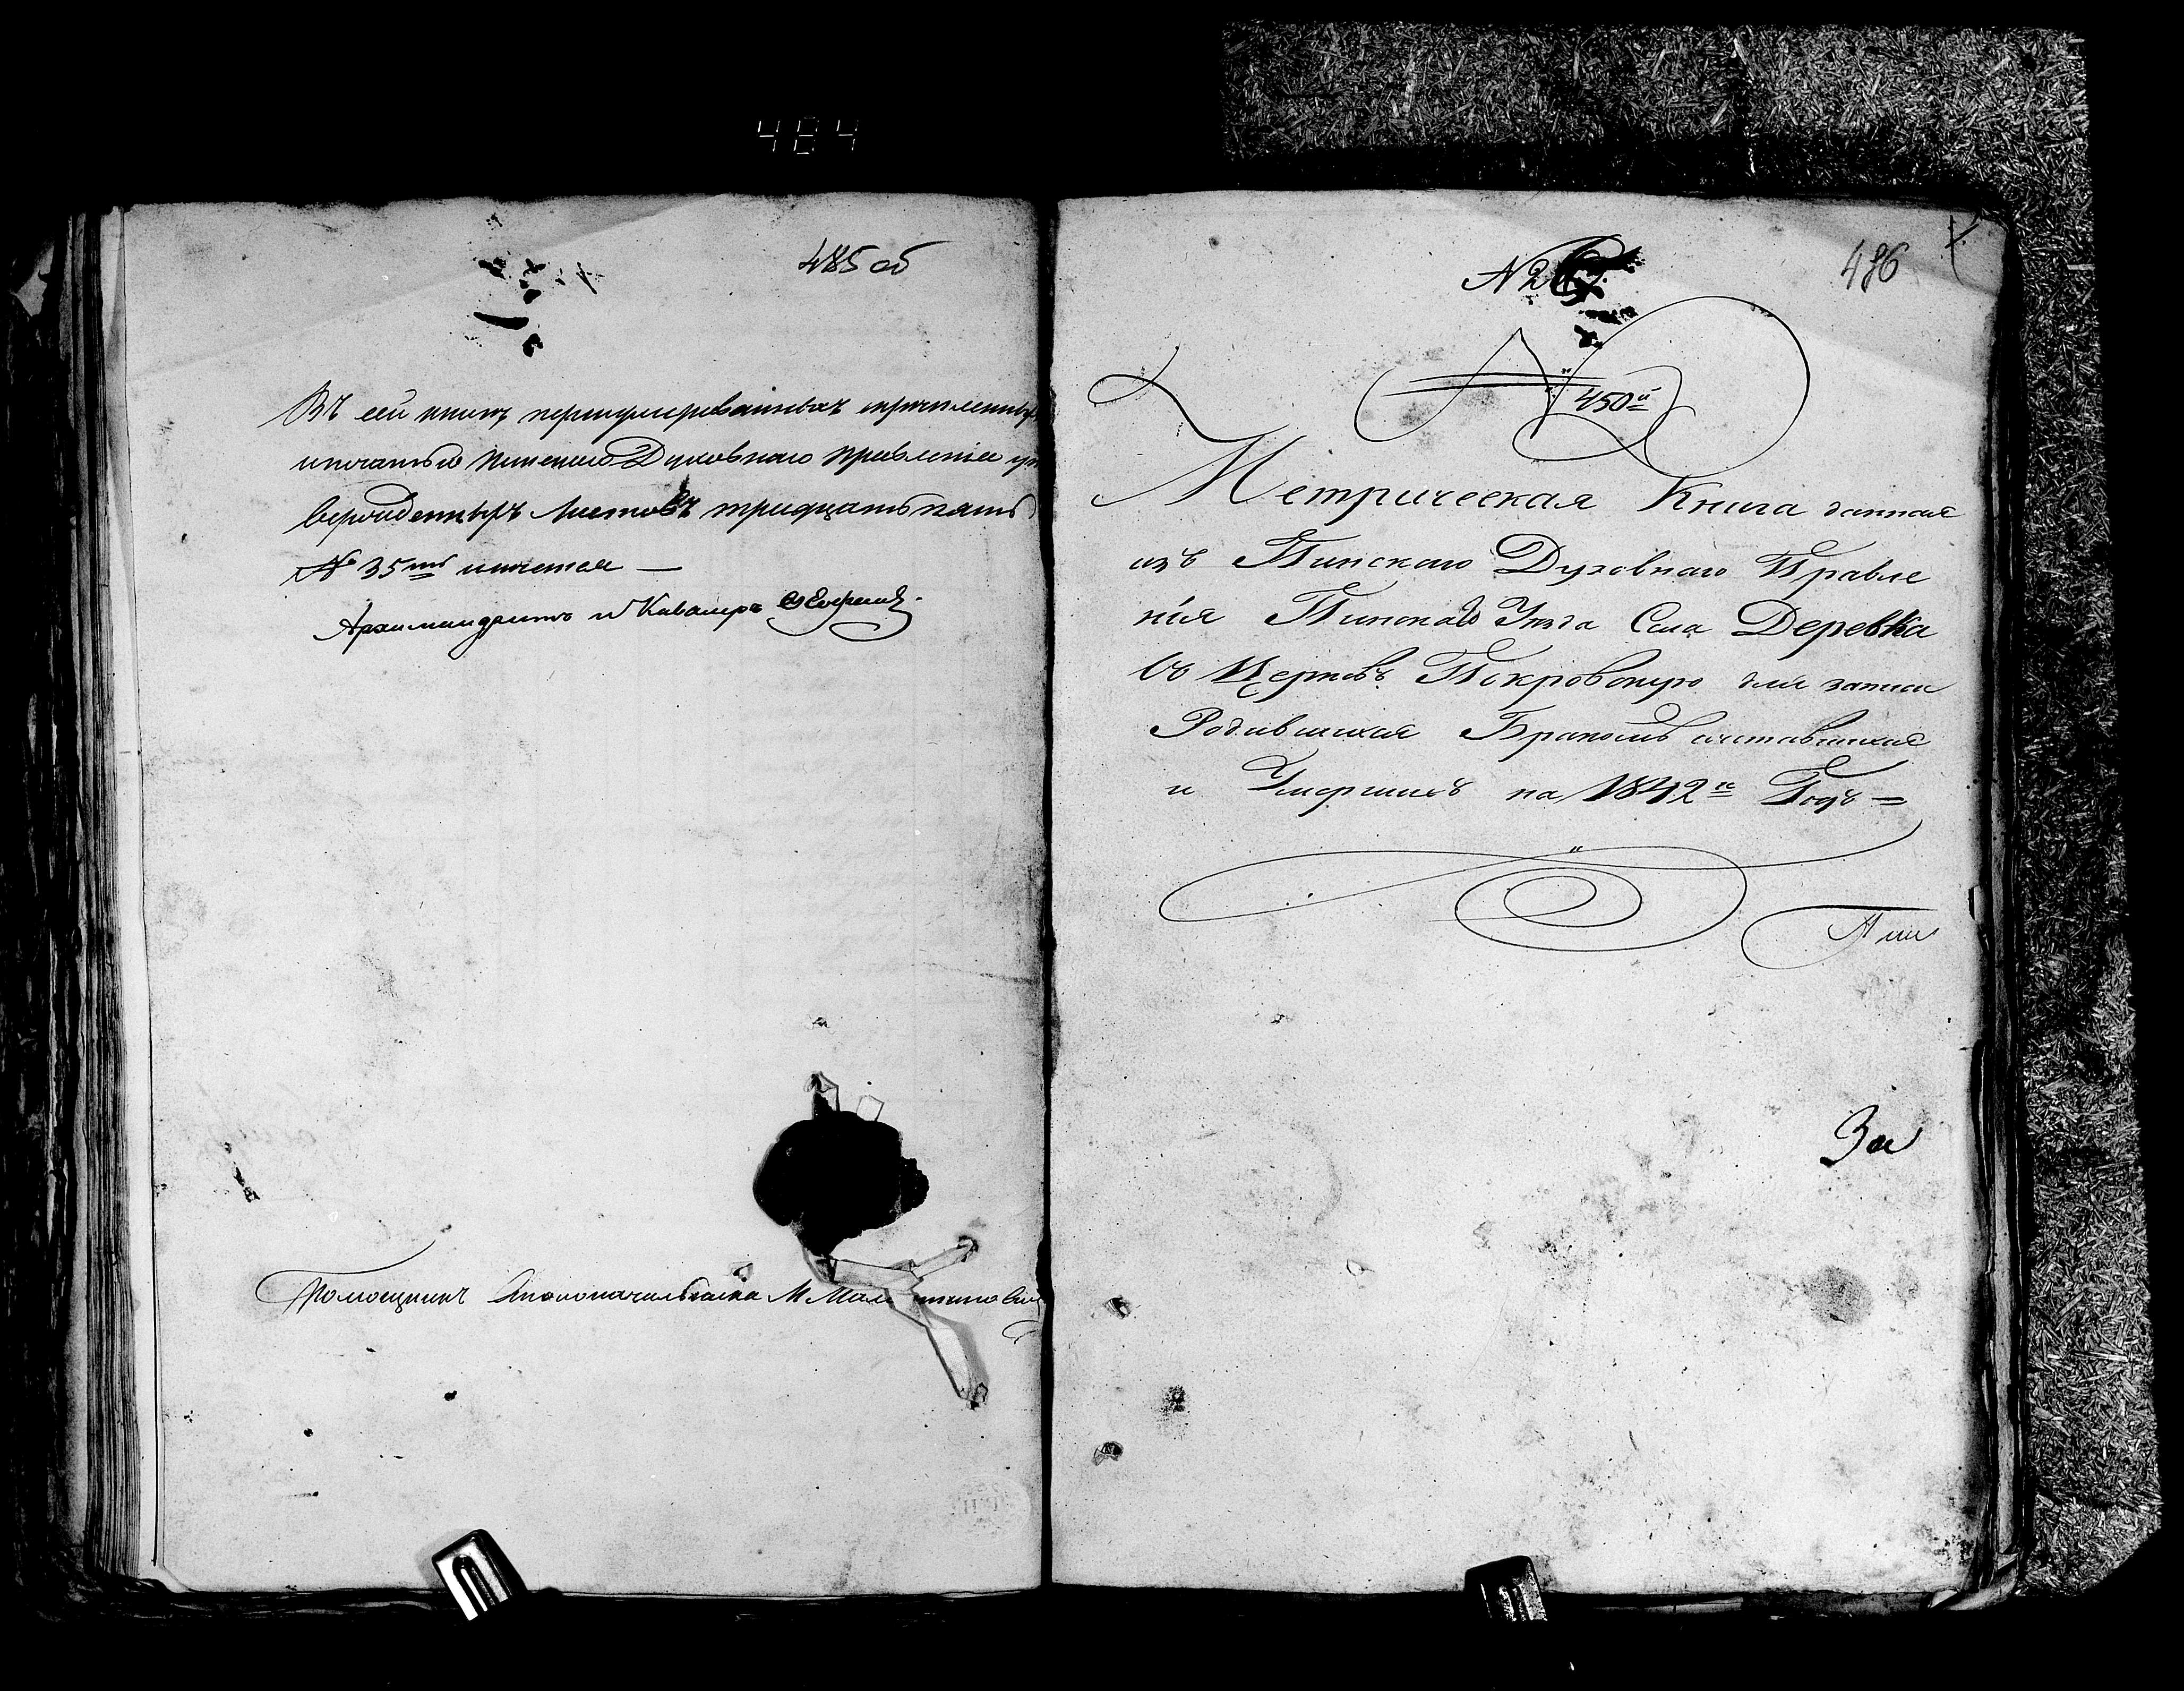 484
485 об
Въ сей книгѣ перенумерованныхъ скрѣпленны
и печатью Пинскаго Духовнаго Правленія ут
вержденныхъ Листовъ тридцать пять
№ 35ть имеется —
Архимандритъ и Кавалеръ
Помощникъ Столоначальника М
486
№ 2
№ 450й
Метрическая Книга данная
изъ Пинскаго Духовнаго Правле
нія Пинскаго Уѣзда Села Деревка
въ Церковь Покровскую для записи
Родившихся Бракомъ сочетавшихся
и Умершихъ на 1842й Годъ =
За